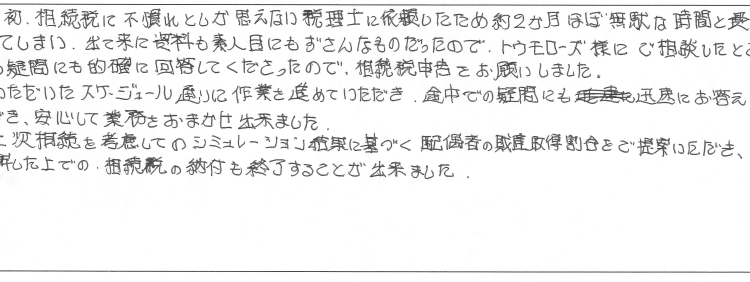 初、相続税に不慣れとしか思えない税理士に依頼したため約2か月ほぼ無駄な時間と長
てしまい、出て来た資料も素人目にもずさんなものだったので、トゥモローズ様にご相談したとこ
疑問にも的確に回答してくださったので、相続税申告をお願いしました。
ただいたスケージュール通りに作業を進めていただき、途中での疑問にも迅速にお答え
でき、安心して業務をおまかせ出来ました。
二次相続を考慮してのシミュレーション結果に基づく配偶者の財産取得割合をご提案いただき、
した上での、相続税の納付も終了することが出来ました.